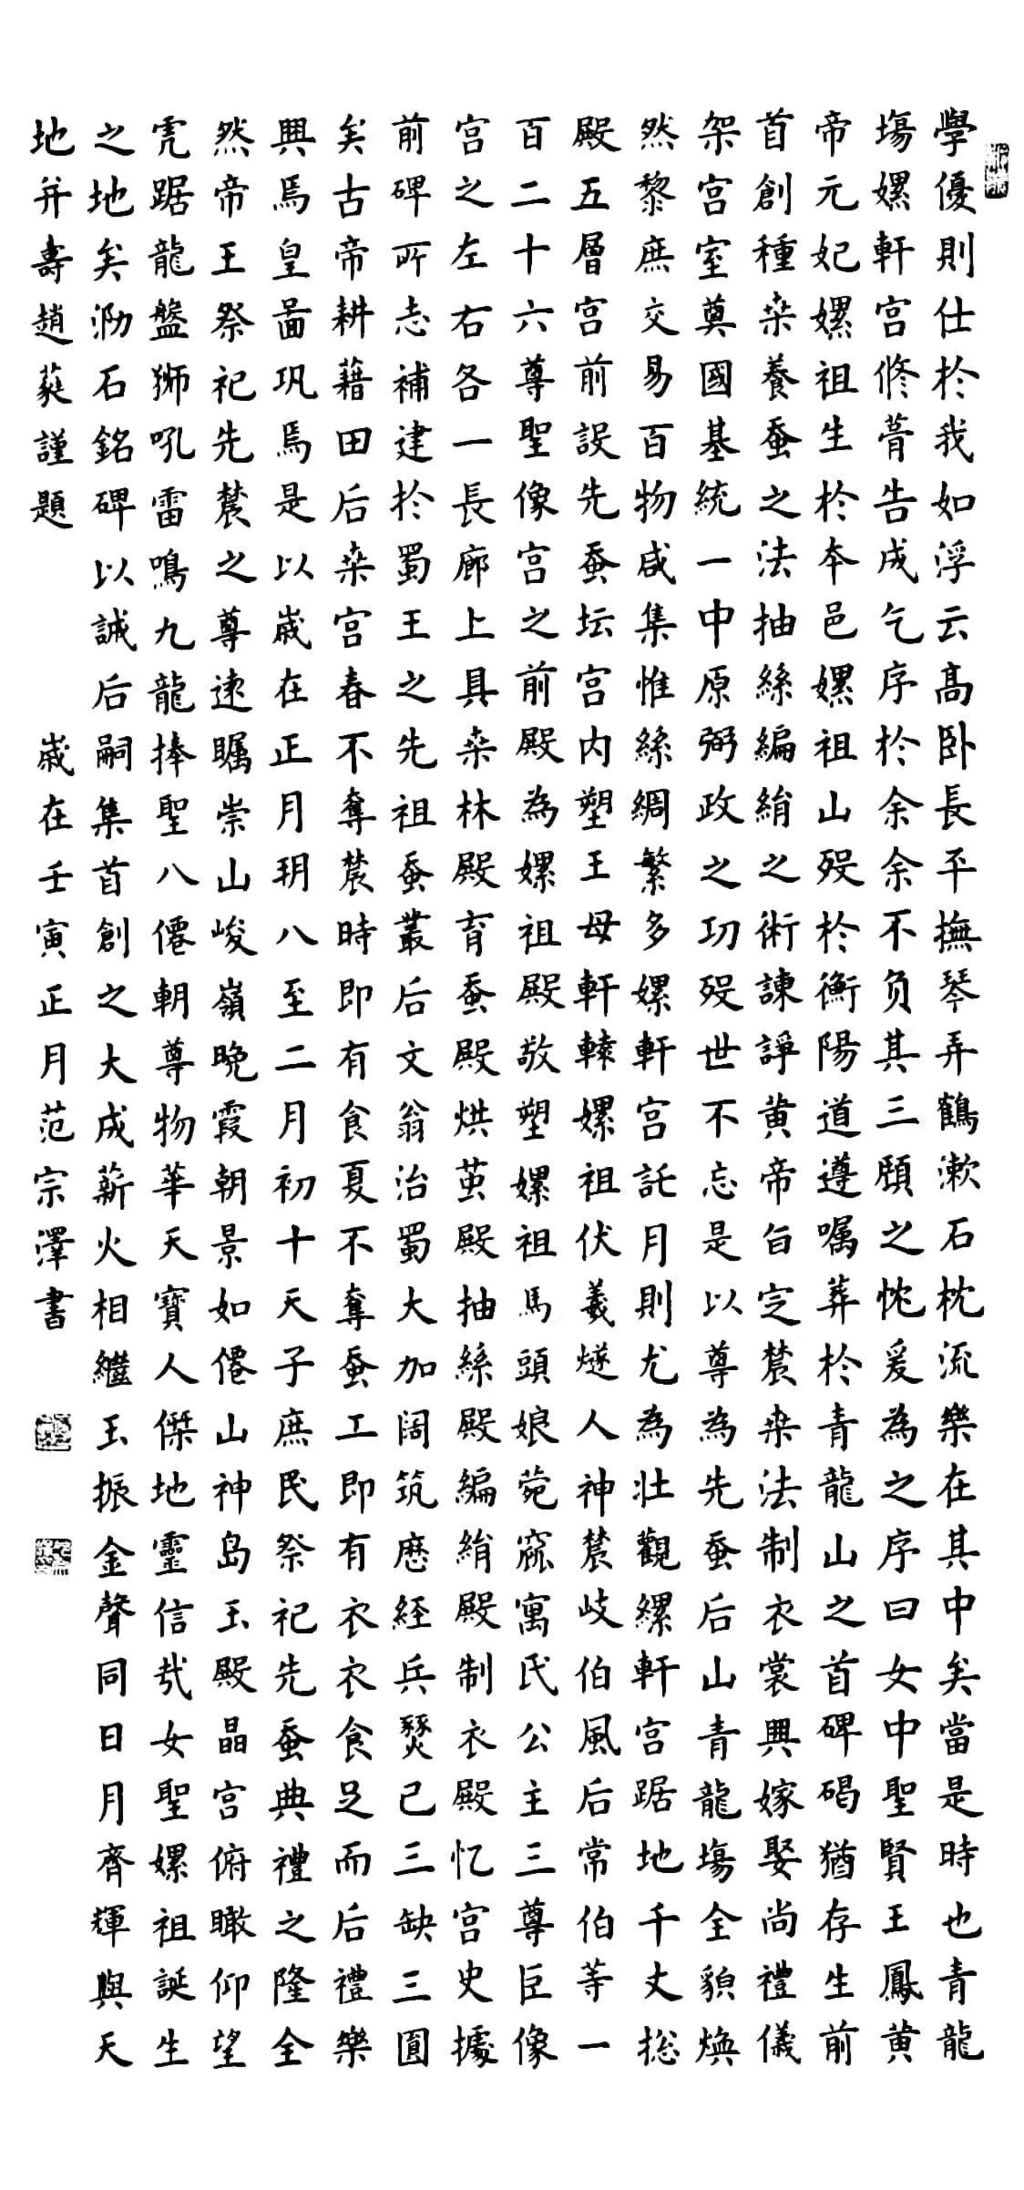 學優則仕於我如浮云高卧長平撫琴弄鶴漱石枕流樂在其中矣當是時也青龍
塲嫘軒宫修葺告成乞序於余余不负其三顧之忱爰為之序曰女中聖賢王鳳黄
帝元妃嫘祖生於本邑嫘祖山殁於衡陽道遵嘱葬於青龍山之首碑碣猶存生前
首創種桒養蚕之法抽絲編絹之術諫諍黄帝旨定農桒法制衣裳興嫁娶尚禮儀
架宫室奠國基統一中原弼政之功殁世不忘是以尊為先蚕后山青龍塲全貌焕
然黎庶交易百物咸集惟絲綢繁多嫘軒宫託月則尤為壮觀嫘軒宫踞地千丈揔
殿五層宫前設先蚕坛宫内塑王母軒轅嫘祖伏羲燧人神農岐伯風后常伯等一
百二十六尊聖像宫之前殿為嫘祖殿敬塑嫘祖馬頭娘菀窳寓氏公主三尊臣像
宫之左右各一長廊上具桒林殿育蚕殿烘茧殿抽絲殿編絹殿制衣殿忆宫史據
前碑所志補建於蜀王之先祖蚕叢后文翁治蜀大加阔筑厯経兵燹已三缺三圓
矣古帝耕藉田后桒宫春不奪農時即有食夏不奪蚕工即有衣衣食足而后禮樂
興焉皇啚巩焉是以崴在正月玥八至二月初十天子庶民祭祀先蚕典禮之隆全
然帝王祭祀先農之尊逺矚崇山峻嶺晚霞朝景如僊山神岛玉殿晶宫俯瞰仰望
虎踞龍盤狮吼雷鳴九龍捧聖八僊朝尊物華天寳人傑地靈信哉女聖嫘祖誕生
之地矣泐石銘碑以誠后嗣集首創之大成薪火相繼玉振金聲同日月齊輝與天
地并壽趙蕤謹題
崴在壬寅正月范宗澤書